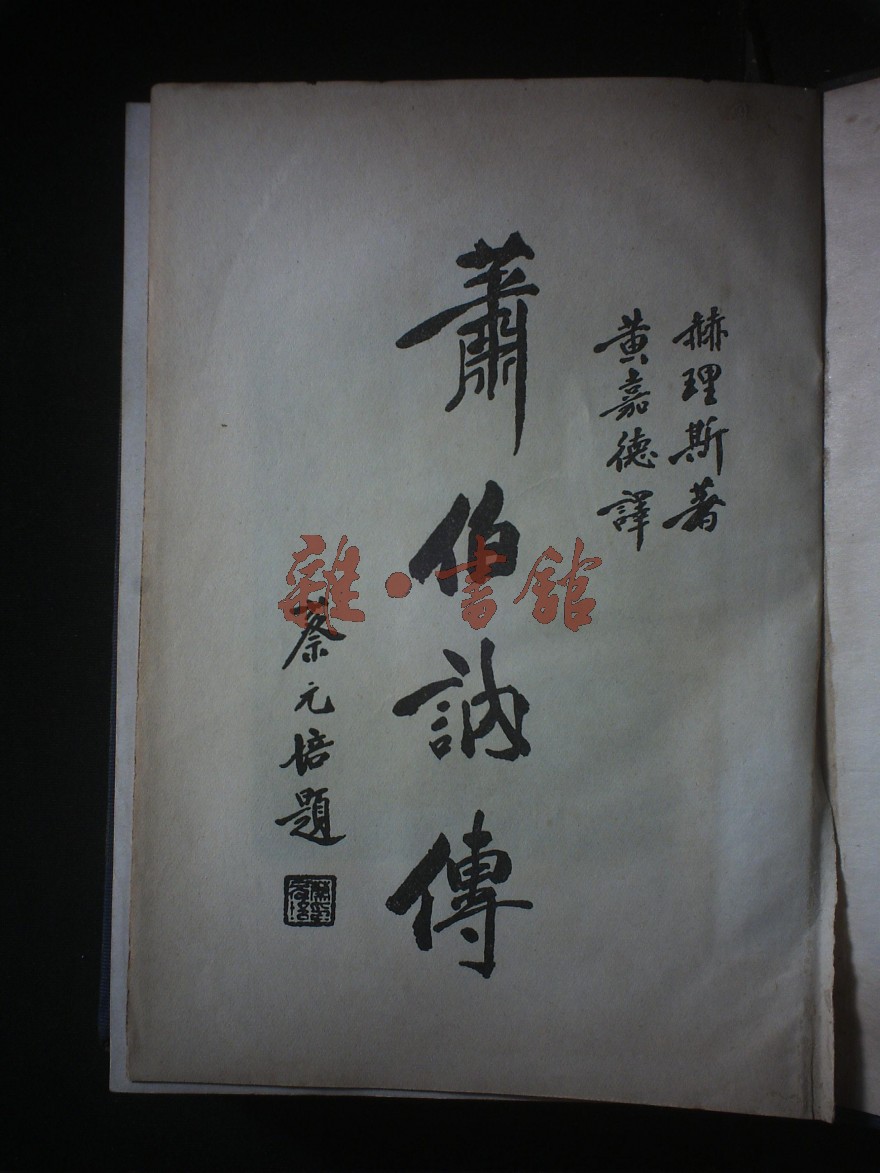 赫理斯著
黃嘉德譯
蕭伯訥傳
蔡元培題
雜·書館